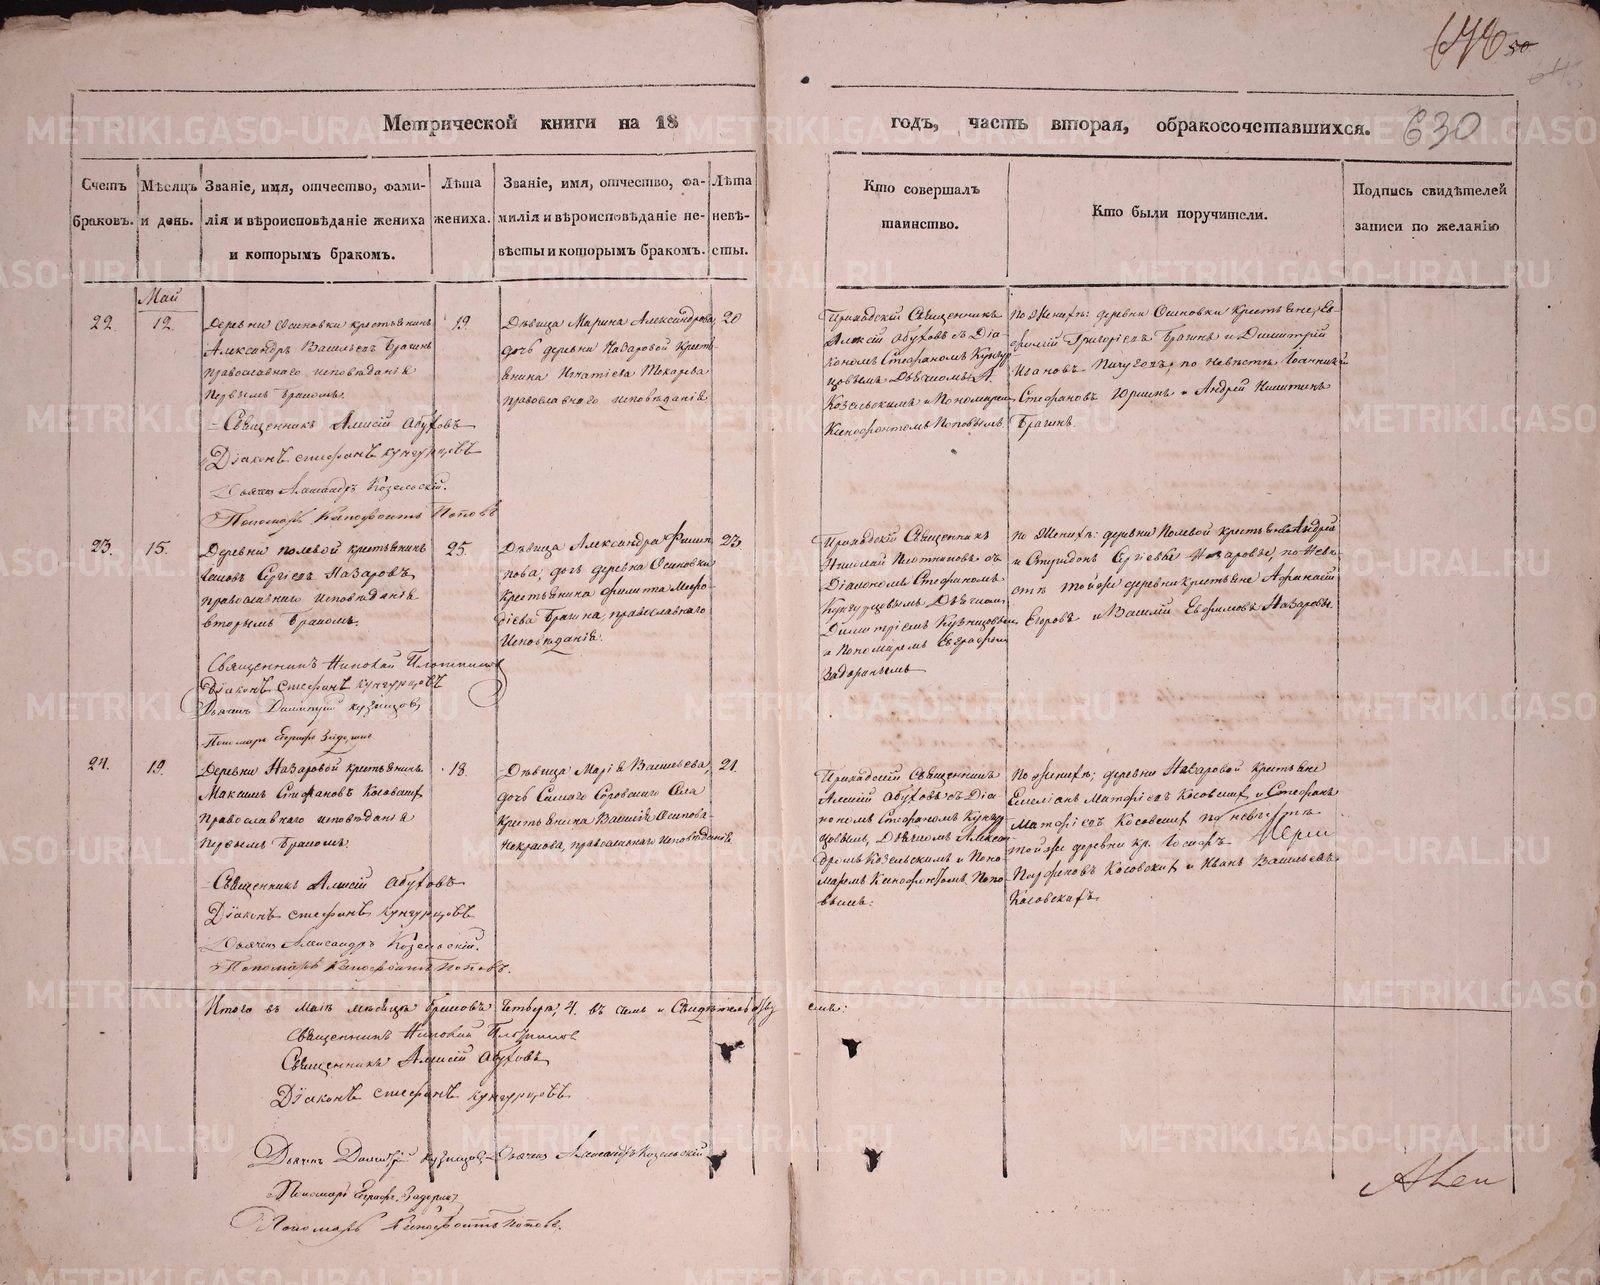 50
630
Метрической книги на 18
годъ, часть вторая, обракосочетавшихся.
Счетъ браковъ.
Мѣсяцъ и день.
Званіе, имя, отчество, фами-
лія и вѣроисповѣданіе жениха
и которымъ бракомъ.
Лѣта
жениха.
Званіе, имя, отчество, фа-
милія и вѣроисповѣданіе не-
вѣсты и которымъ бракомъ.
Лѣта
невѣ-
сты.
Кто совершалъ
таинство.
Кто были поручители.
Подпись свидѣтелей
записи по желанію
Май
22.
12.
Деревни Осиновки крестьянинъ
Александръ Васильевъ Брагинъ
православнаго исповѣданія
первымъ бракомъ.
Священникъ Алексій Обуховъ
Діаконъ Стефанъ Кунгурцовъ
Дьячекъ Александръ Козельскій.
Пономарь Ксенофонтъ Поповъ
19.
Дѣвица Марина Александрова,
дочь деревни Назаровой кресть-
янина Игнатіева Токарева
православнаго исповѣданія
20
Приходскій Священникъ
Алексій Обуховъ съ Діа-
кономъ Стефаномъ Кунгур-
цовымъ Дьячкомъ А.
Козельскимъ и Пономаремъ
Ксенофонтомъ Поповымъ
По женихѣ: деревни Осиновки крестьяне
Григоріевъ Брагинъ и Димитрій
Ивановъ по невѣстѣ
Стефановъ Юринъ и Андрей Никитинъ
Брагинъ.
23.
15.
Деревни Полевой крестьянинъ
Сергіевъ Назаровъ
православнаго исповѣданія
вторымъ бракомъ.
Священникъ Николай Плотниковъ
Діаконъ Стефанъ Кунгурцовъ
Дьячекъ Димитрій Кузнецовъ
Пономарь
25.
Дѣвица Александра Филип-
пова, дочь деревни Осиновки
крестьянина Филипа Мефо-
діева Брагина, православнаго
исповѣданія.
23
Приходскій Священникъ
Николай Плотниковъ съ
Діакономъ Стефаномъ
Кунгурцовымъ, Дьячкомъ
Димитріемъ Кузнецовымъ
и Пономаремъ Евграфомъ
По женихѣ: деревни Полевой крестьяне Андрей
и Спиридонъ Сергіевы Назаровы, по невѣ-
стѣ той же деревни крестьяне Афанасій
Егоровъ и Василій Евфимовъ Назаровы
24.
19.
Деревни Назаровой крестьянинъ
Максимъ Стефановъ Косовскихъ
православнаго исповѣданія
первымъ бракомъ.
Священникъ Алексій Обуховъ
Діаконъ Стефанъ Кунгурцовъ
Дьячекъ Александръ Козельскій.
Пономарь Ксенофонтъ Поповъ.
18.
Дѣвица Марія Васильева,
дочь Самаго Села
крестьянина Василія Осипова
Некрасова, православнаго исповѣданія.
21.
Приходскій Священникъ
Алексій Обуховъ съ Діа-
кономъ Стефаномъ Кунгур-
цовымъ, Дьячкомъ Алексан-
дромъ Козельскимъ и Поно-
маремъ Ксенофонтомъ Попо-
вымъ.
По женихѣ: деревни Назаровой крестьяне
Емеліанъ Матфіевъ Косовскихъ и Стефанъ
Матфіевъ Косовскихъ по невѣстѣ
той же деревни кр. Іосифъ
Косовскихъ и Иванъ Васильевъ
Косовскихъ.
Итого въ Маѣ мѣсяцѣ браковъ четыре, 4. въ чемъ и Свидѣтельству-
емъ:
Священникъ Николай Плотниковъ
Священникъ Алексій Обуховъ
Діаконъ Стефанъ Кунгурцовъ
Дьячекъ Димитрій Кузнецовъ Дьячекъ Александръ Козельскій
Пономарь Евграфъ
Пономарь Ксенофонтъ Поповъ.
METRIKI.GASO-URAL.RU